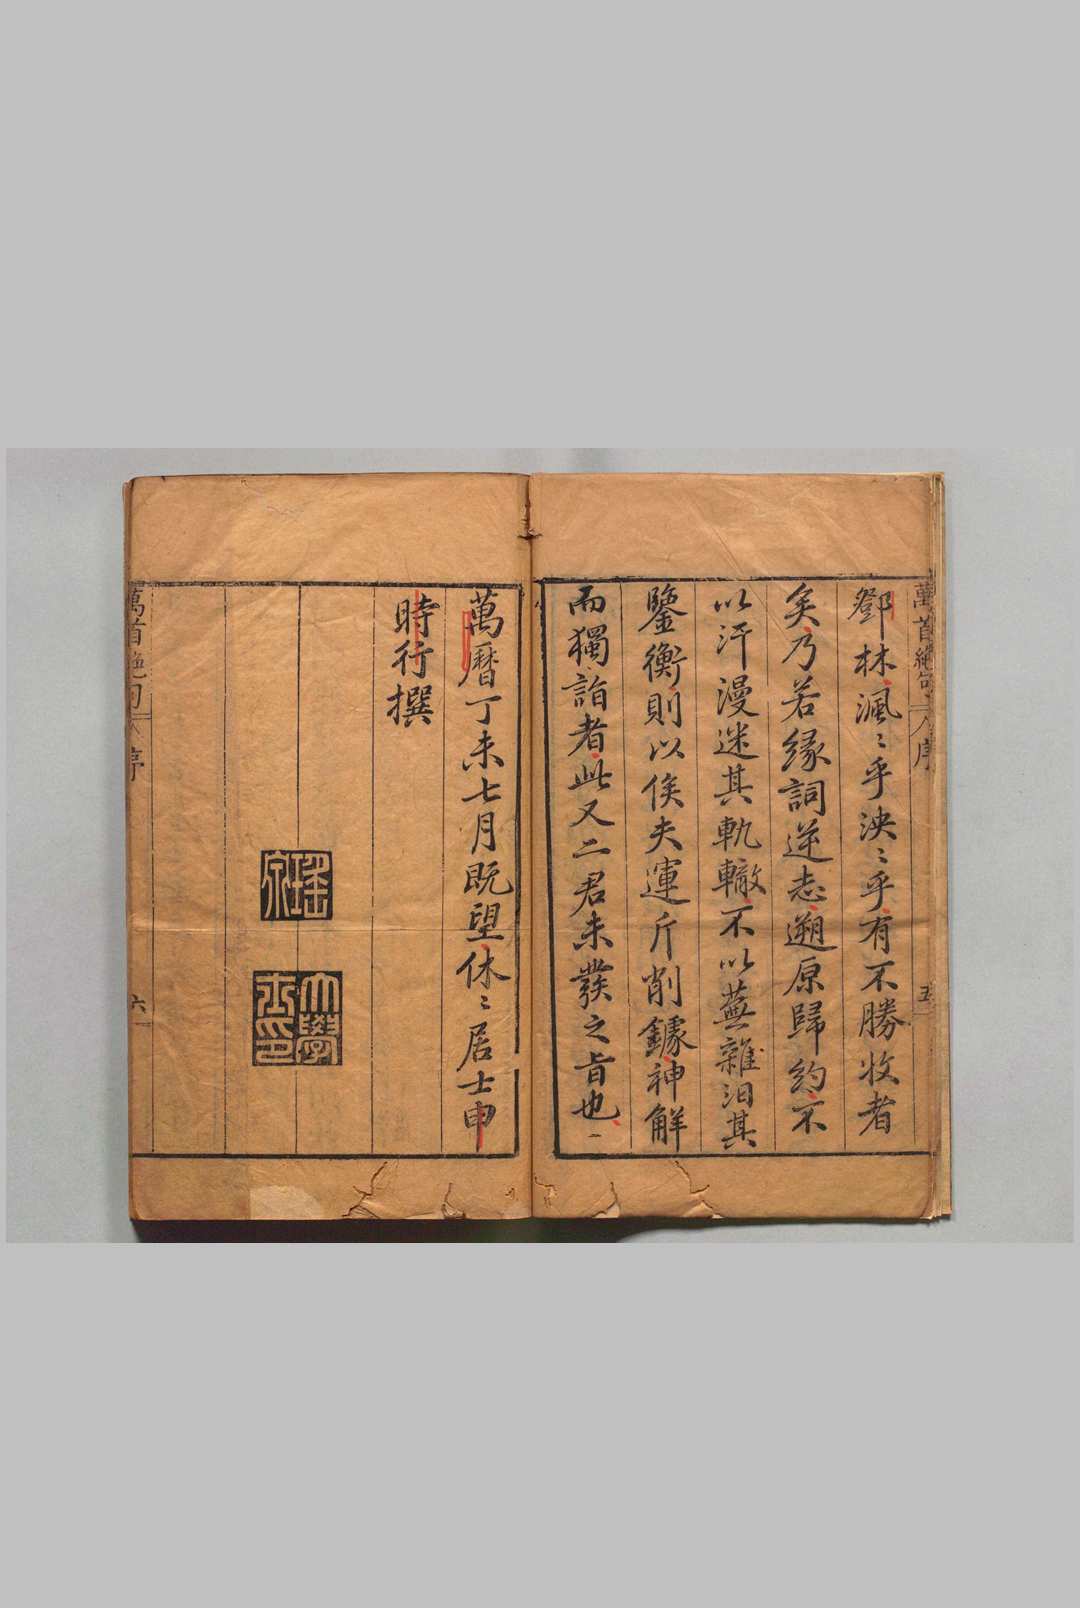 鄧林渢〻乎泱〻乎有不勝收者
矣乃若緣詞逆志遡原歸約不
以汗漫迷其軌轍不以蕪雜汩其
鑒衡則以俟夫運斤削鐻神解
而獨詣者此又二君未發之旨也
萬曆丁未七月既望休〻居士申
時行撰
瑤泉
大學士印
萬首絕句 序 五
萬首絕句 序 六